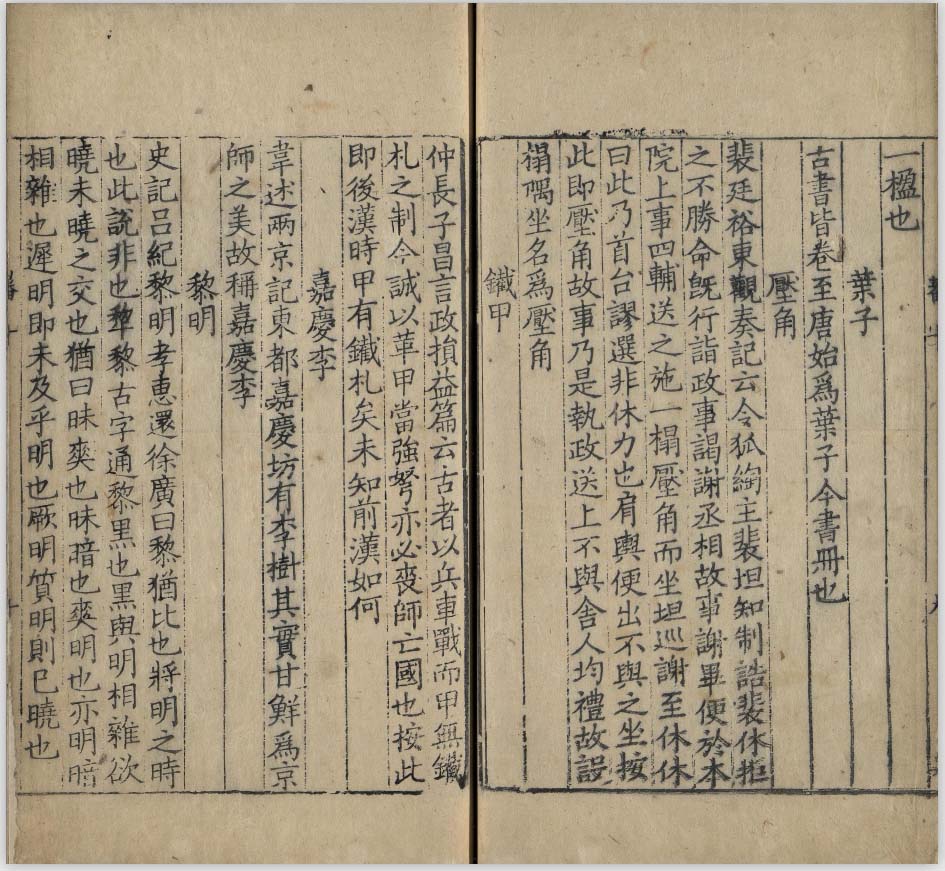 一楹也
葉子
古書皆卷至唐始爲葉子今書冊也
壓角
裴廷裕東觀奏記云令狐綯主裴坦知制誥裴休拒
之不勝命旣行詣政事謁謝丞相故事謝畢便於本
院上事四輔送之施一榻壓角而坐坦巡謝至休休
曰此乃首台謬選非休力也肩輿便出不與之坐按
此即壓角故事乃是執政送上不與舍人均禮故設
榻隅坐名爲壓角
鐵甲
仲長子昌言政損益篇云古者以兵車戰而甲無鐵
札之制今誠以革甲當強弩亦必喪師亡國也按此
即後漢時甲有鐵札矣未知前漢如何
嘉慶李
韋述两京記東都嘉慶坊有李樹其實甘鮮爲京
師之美故稱嘉慶李
黎明
史記吕紀黎明孝惠還徐廣曰黎猶比也將明之時
也此說非也犂黎古字通黎黑也黑與明相雜欲
曉未曉之交也猶曰昧爽也昧暗也爽明也亦明暗
相雜也遲明即未及乎明也厥明質明則已曉也